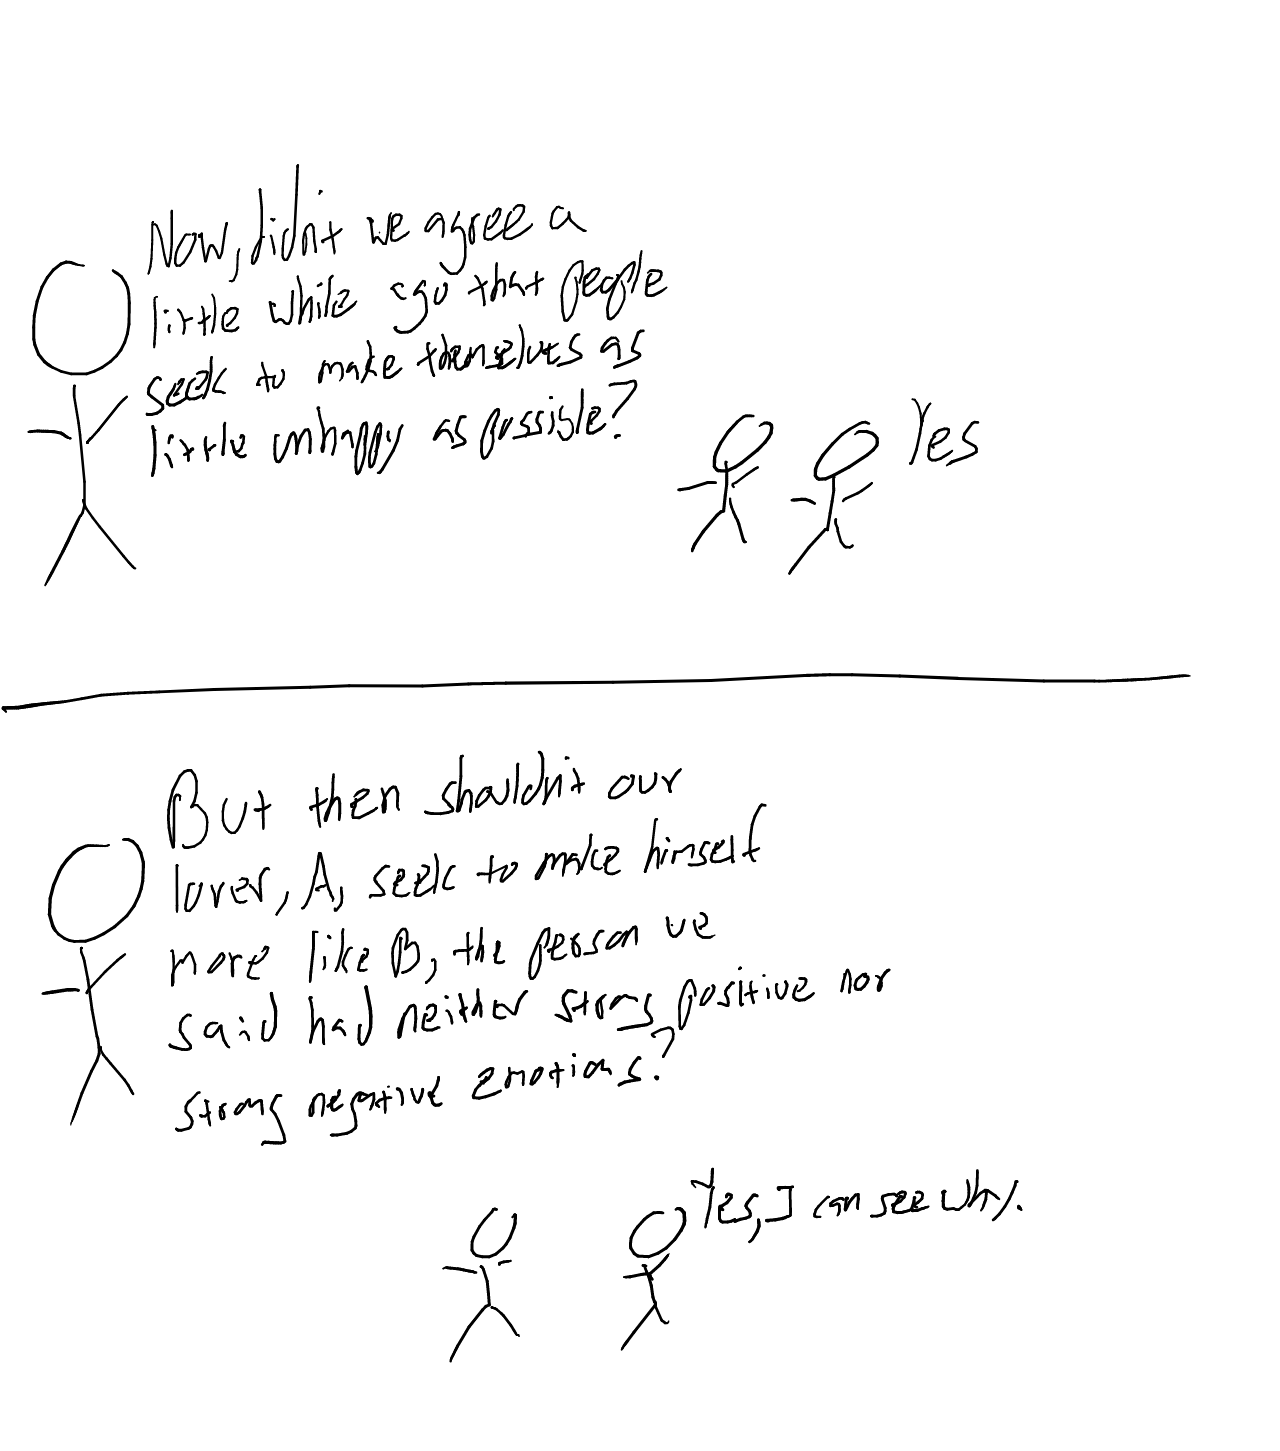 Now, didn't we agree a
little while ago that people
seek to make themselves as
little unhappy as possible?
Yes
But then shouldn't our
lover, A, seek to make himself
more like B, the person we
said had neither strong positive nor
strong negative emotions?
Yes, I can see why.